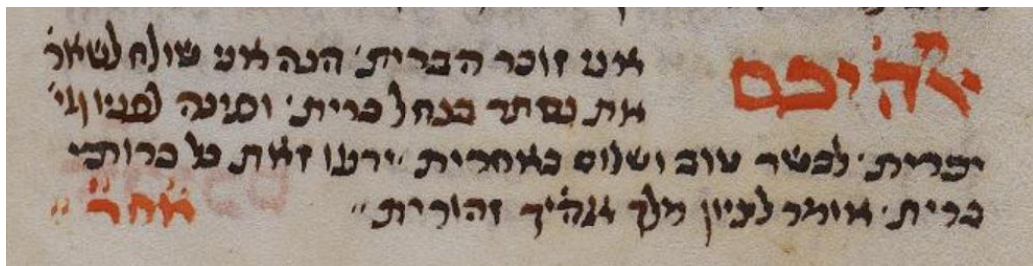 אלהיכם אני זוכר הברית· הנה אני שולח לשאר'
את נסתר בנחל כרית· ופינה לפניו
לבשר טוב ושלום באחרית· זאת כל כרותי
ברית· אומר לציון מלך אלהיך זהורית״ אחר״